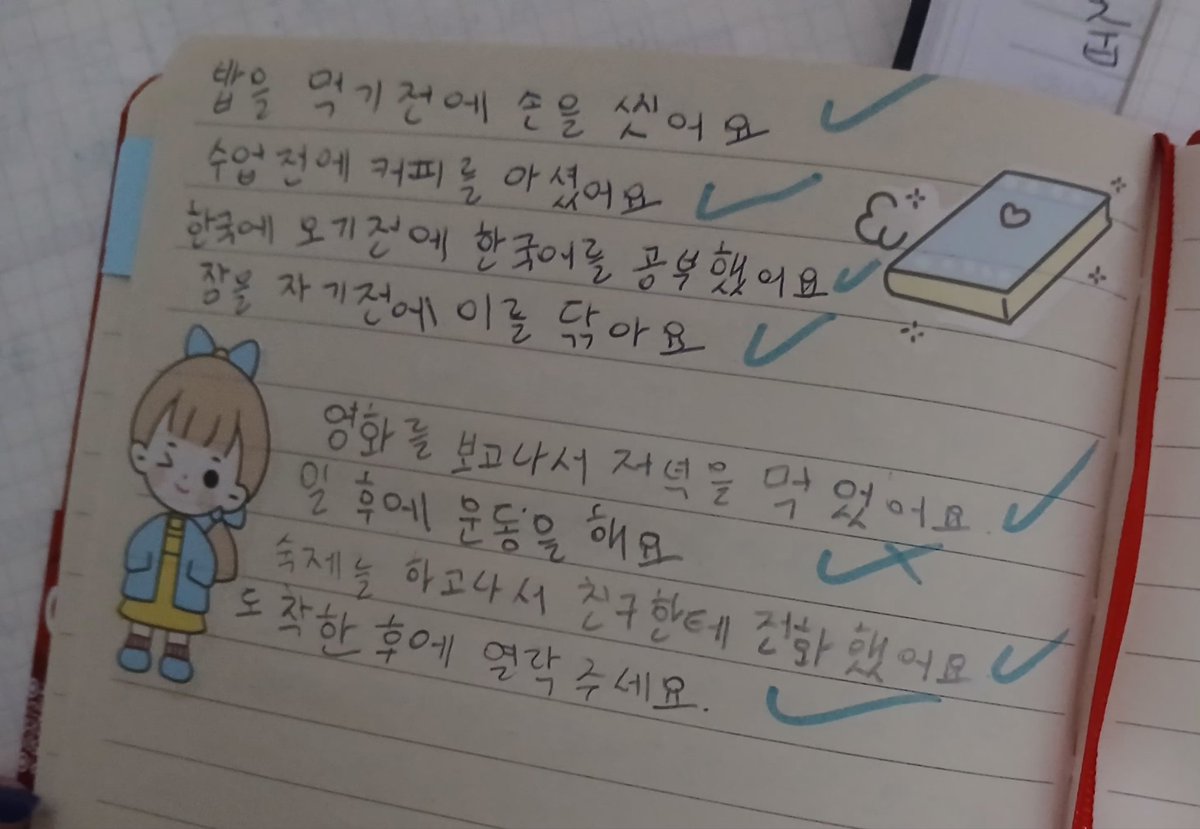 밥을 먹기전에 손을 씻어요
수업전에 커피를 아셨어요
한국에 오기전에 한국어를 공부했어요
잠을 자기전에 이를 닦아요
영화를 보고나서 저녁을 먹었어요
일 후에 운동을 해요
숙제를 하고나서 친구한테 전화했어요
도착한 후에 열락주세요.